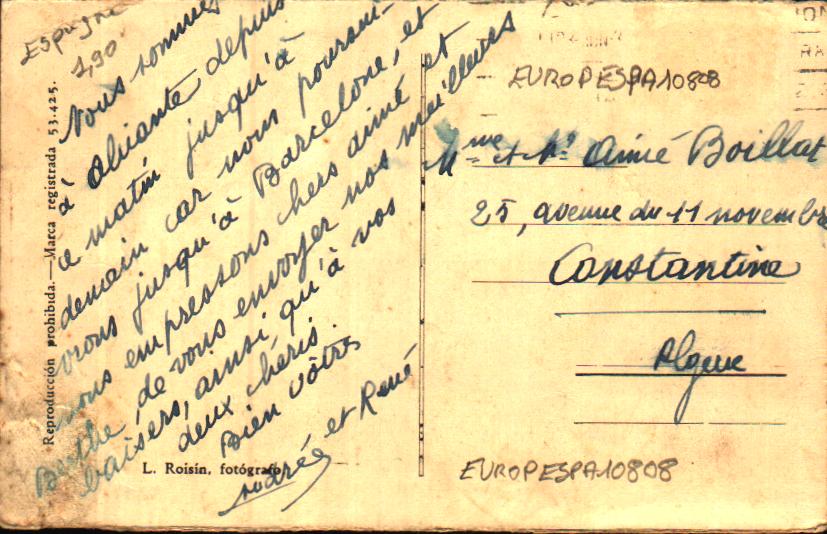 Espagne
2,90
Nous sommes
à Alicante depuis
ce matin jusqu'à
demain car nous poursui-
vrons jusqu'à Barcelone, et
nous empressons chers aimé et
Berthe, de vous envoyer nos meilleures
baisers, ainsi qu'à vos
deux chéris.
Bien vôtres
Andrée et René
Reproducción prohibida.—Marca registrada 53.425.
L. Roisin, fotógrafo
EUROPESPA10808
Mme et Mr Aimé Boillat
25, avenue du 11 novembre
Constantine
Algerie
EUROPESPA10808